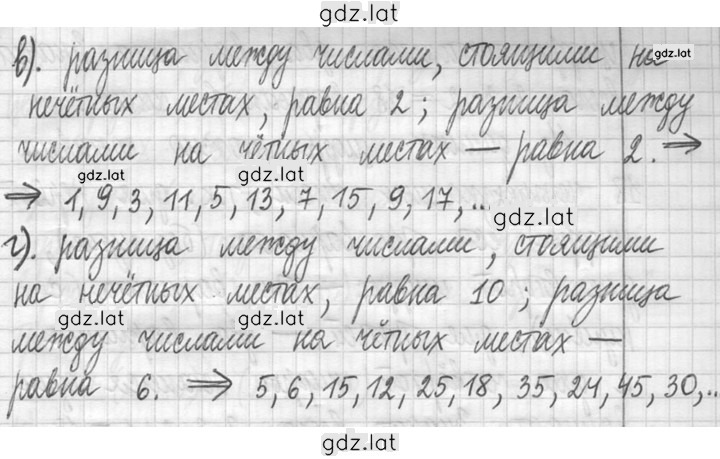 gdz.lat
в). разница между числами, стоящими на
gdz.lat
нечётных местах, равна 2; разница между
числами на чётных местах — равна 2. ⇒
gdz.lat
gdz.lat
⇒ 1, 9, 3, 11, 5, 13, 7, 15, 9, 17, ...
gdz.lat
г). разница между числами, стоящими
на нечётных местах, равна 10; разница
gdz.lat
gdz.lat
между числами на чётных местах —
равна 6. ⇒ 5, 6, 15, 12, 25, 18, 35, 24, 45, 30, ..
gdz.lat